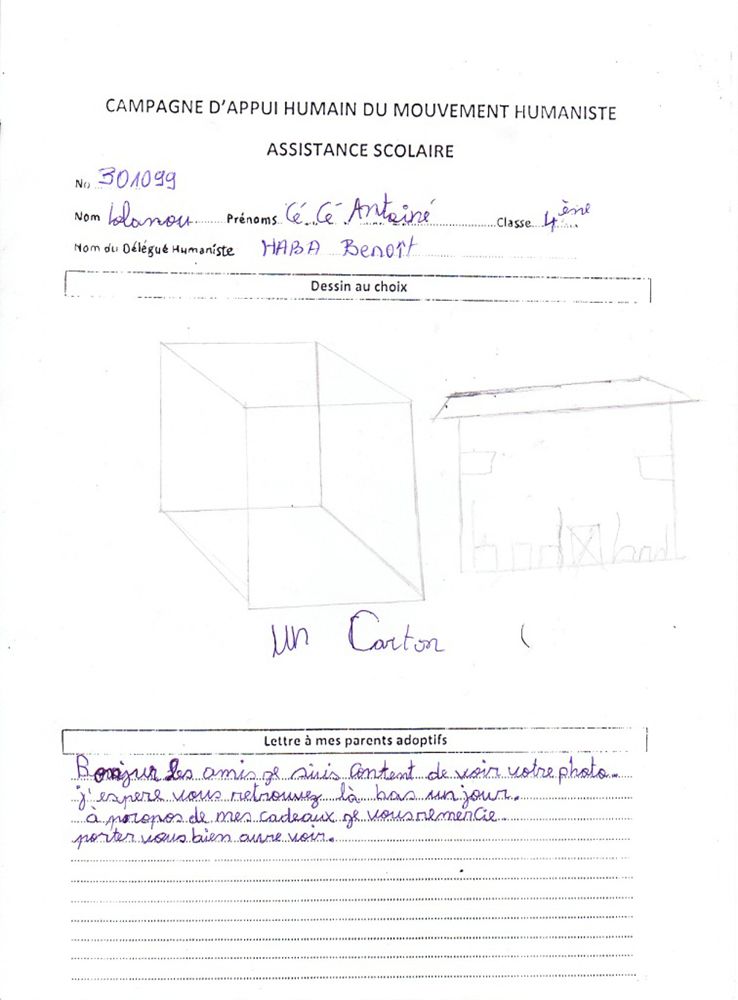 CAMPAGNE D'APPUI HUMAIN DU MOUVEMENT HUMANISTE
ASSISTANCE SCOLAIRE
No 301099
Nom Prénoms Cé Cé Antoiné Classe 4ème
Nom du Délégué Humaniste HABA Benoît
Dessin au choix
un Carton
Lettre à mes parents adoptifs
Bonjour les amis je suis content de voir votre photo.
j'espere vous retrouvez là bas un jour.
à propos de mes cadeaux je vous remercie.
porter vous bien aure voir.